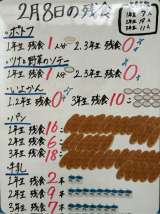 2月8日の残食
・ポトフ
1年生 残食1人分 2.3年生 残食0
ツナと野菜のソテー
1年生 残食1人分 2.3年生 残食0
・いよかん
1.2年生 残食0 3年生 残食10こ
・パン
1年生 残食16こ
2年生 残食6こ
3年生 残食18こ
・牛乳
1年生 残食2本
2年生 残食9本
3年生 残食7本